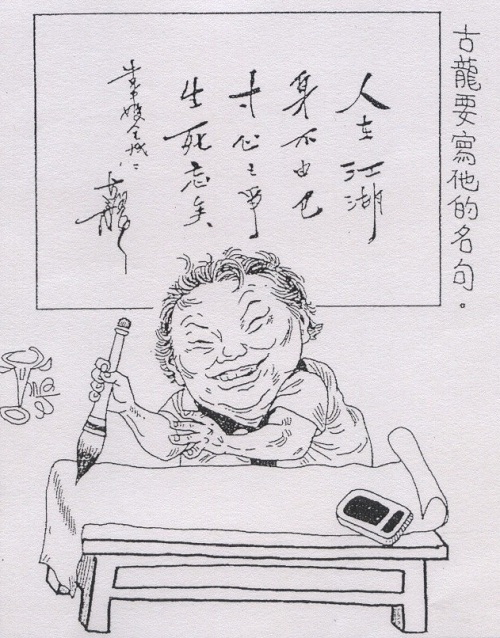 古龍要寫他的名句。
人在江湖
身不由己
寸心之爭
生死忘矣
古龍